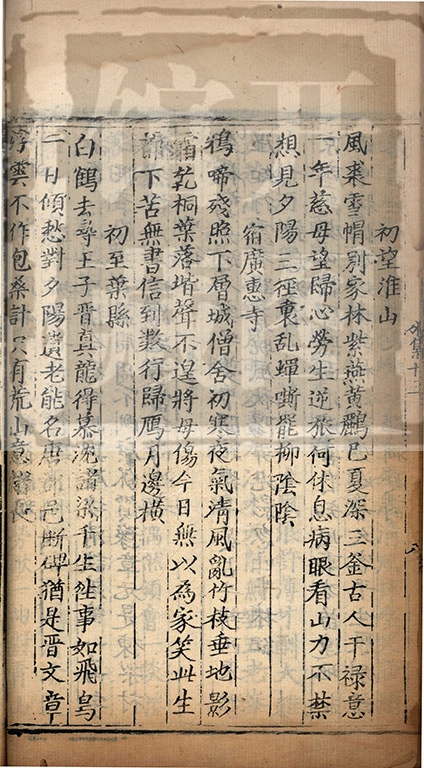 初望淮山
風裘雪帽別家林紫燕黃鸝巳夏深三釜古人干禄意
一年慈母望歸心勞生逆旅何休息病眼看山力不禁
想見夕陽三徑裏亂蟬嘶罷柳陰陰
宿廣惠寺
鴉啼殘照下層城僧舍初寒夜氣清風亂竹枝垂地影
霜乾桐葉落堦聲不遑將母傷今日無以為家笑此生
下苦無書信到數行歸鴈月邊橫
初至葉縣
白鶴去尋王子晋真龍得慕沈諸梁千生徃事如飛鳥
一日傾愁對夕陽遺老能名唐邑斷碑猶是晋文章
雲不作包桑計只有荒山意緒